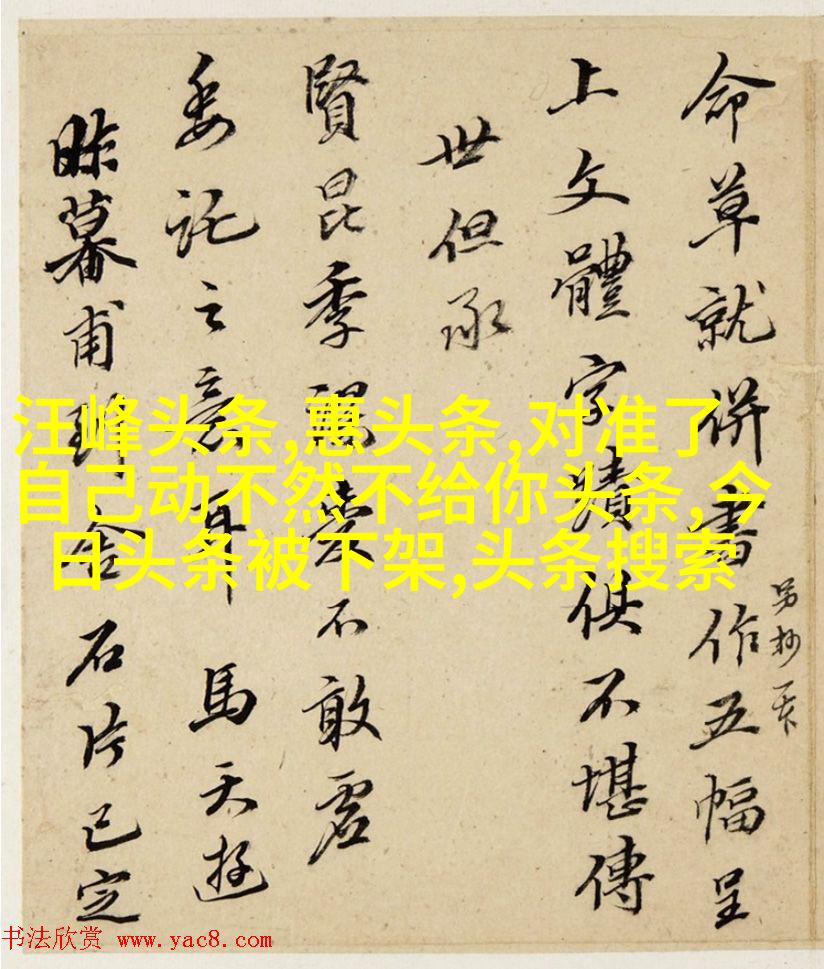 命草就併書作五幅呈
另抄
上文體字蹟俱不堪傳
世但承
賢昆季愛不敢虛
委託之意耳馬天遊
昨暮甫到舍石片已定
汪峰头条,惠头条,对准了
自己动不然不给你头条,今
日头条被下架,头条搜索
书法欣赏 www.yac8.com